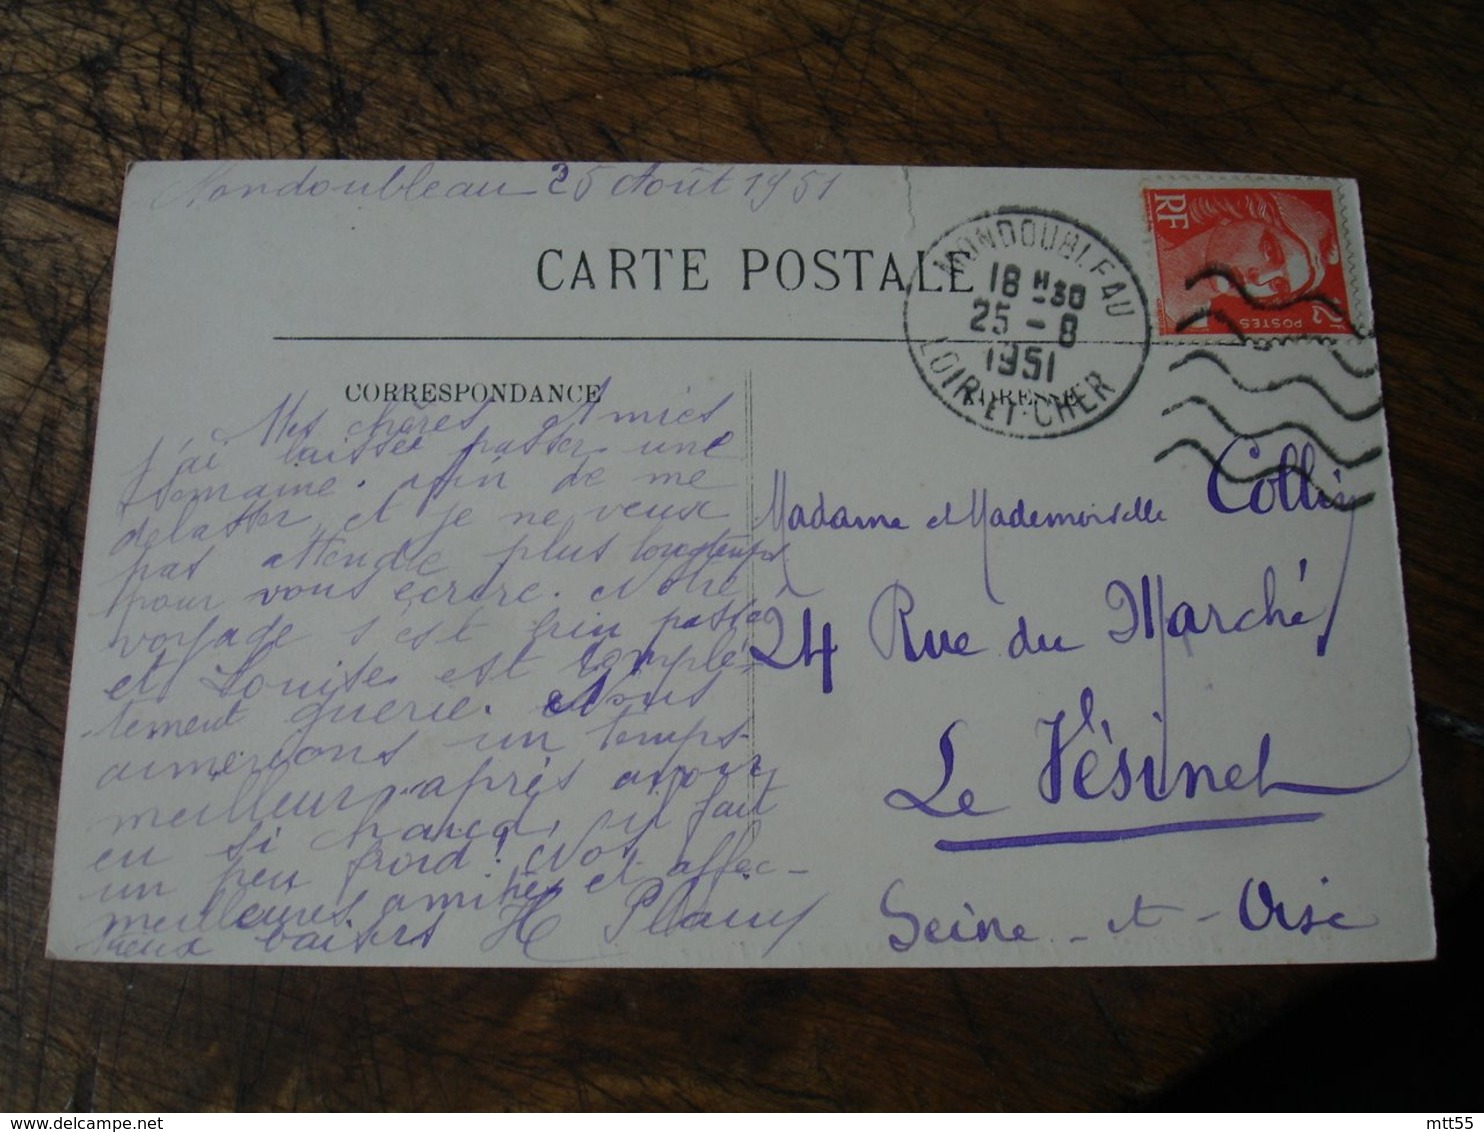 Mondoubleau 25 Août 1951
CARTE POSTALE
CORRESPONDANCE
Mes chères Amies
j'ai laissée passer une
semaine. afin de me
delasser, et je ne veux
pas attendre plus longtemps
pour vous écrire. Notre
voyage s'est bien passé
et Louise est complé-
-tement guerie. Nous
aimerions un temps
meilleur, après avoir
eu si chaud, il fait
un peu froid! Nos
meilleures amitiés et affec-
tueux baisers H
MONDOUBLEAU
18 H 30
25 - 8
1951
LOIR-ET-CHER
ADRESSE
RF
POSTES
12F
Madame et Mademoiselle Collin
24 Rue du Marché
Le Vésinet
Seine-et-Oise
mtt55